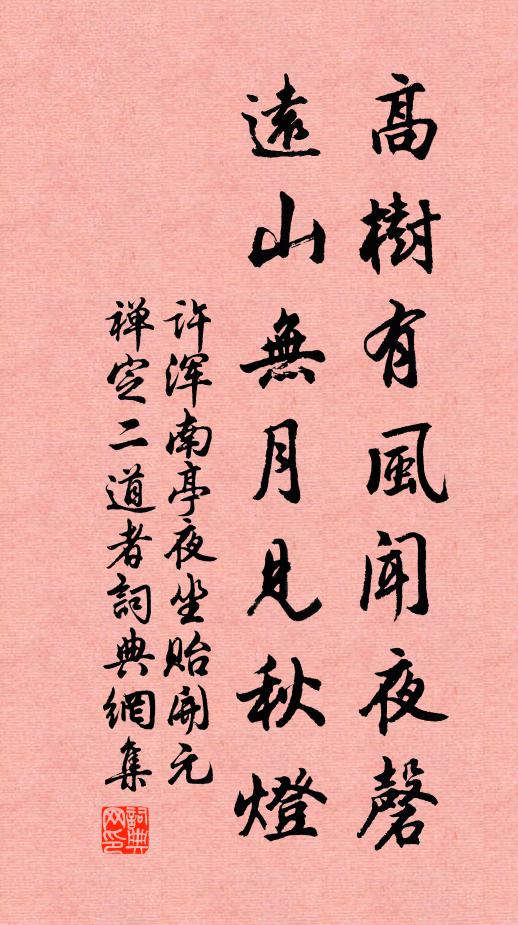 高樹有風聞夜磬
遠山無月見秋燈
许浑南亭夜坐贻開元
禅定二道者詞典網集
詞典网印